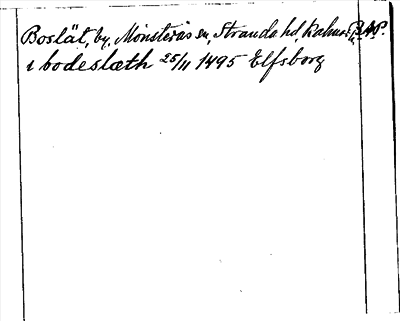 Boslät, by, Mönsterås sn, Stranda hd, Kalmar
i bodeslæth 25/11 1495 Elfsborg